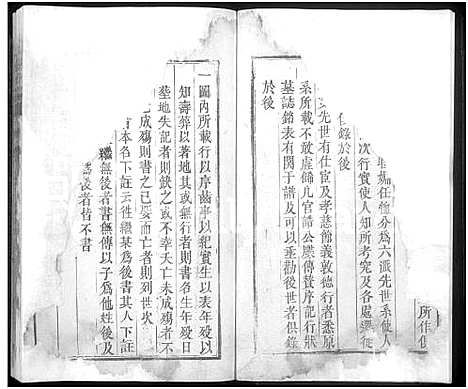 所作
分為六派先世系使人
次行實使人知所考究及各處遷徙
錄於後
先世有仕宦及孝慈節義敦德行者悉原
系所載不敢虛餙凡官誥公牒傳贊序記行狀
墓誌銘表有関于譜及可以垂勸後世者俱錄
於後
一圖内所載行以序齒事以紀實生以表年殁以
知壽葬以著地其或無行者則書名生年殁日
塋地失記者則缺之或不幸夭亡未成殤者不
成殤則書之已娶而亡者則列世次
本名下註云继某為後書其人下註
繼無後者書無傳以子為他姓後及
為後者皆不書